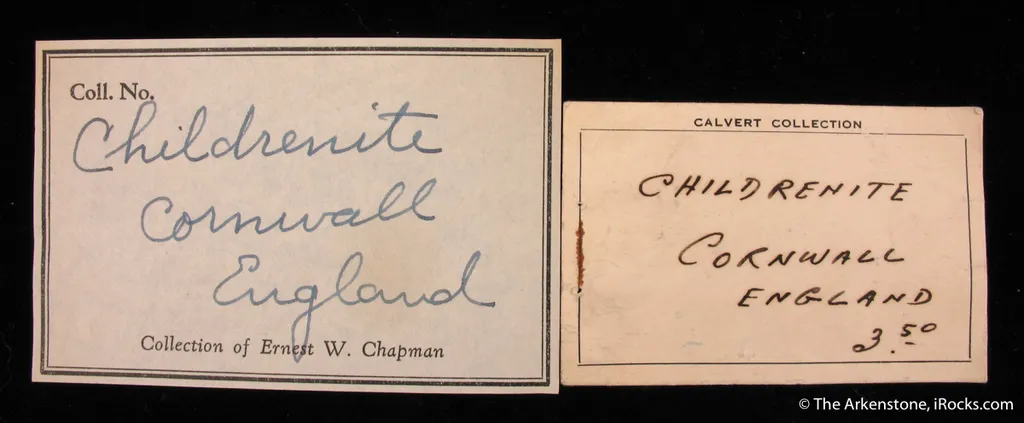 Coll. No.
Childrenite
Cornwall
England
Collection of Ernest W. Chapman
CALVERT COLLECTION
CHILDRENITE
CORNWALL
ENGLAND
3.50
© The Arkenstone, iRocks.com